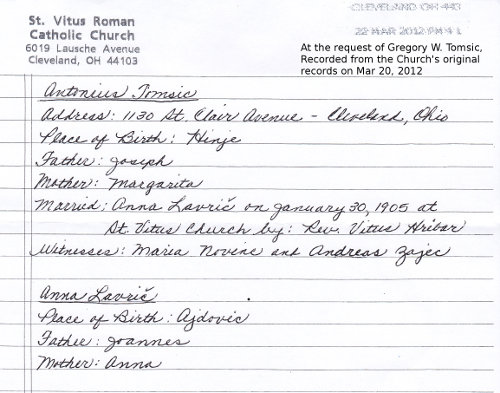 St. Vitus Roman
Catholic Church
6019 Lausche Avenue
Cleveland, OH 44103
CLEVELAND OH 440
22 MAR 2012 PM 4 L
At the request of Gregory W. Tomsic,
Recorded from the Church's original
records on Mar 20, 2012
Antonius Tomsic
Address: 1130 St. Clair Avenue - Cleveland, Ohio
Place of Birth: Hinje
Father: Joseph
Mother: Margarita
Married: Anna Lavrič on January 30, 1905 at
St. Vitus Church by: Rev. Vitus Hribar
Witnesses: Maria Novinc and Andreas Zajec
Anna Lavrič
Place of Birth: Ajdovic
Father: Joannes
Mother: Anna